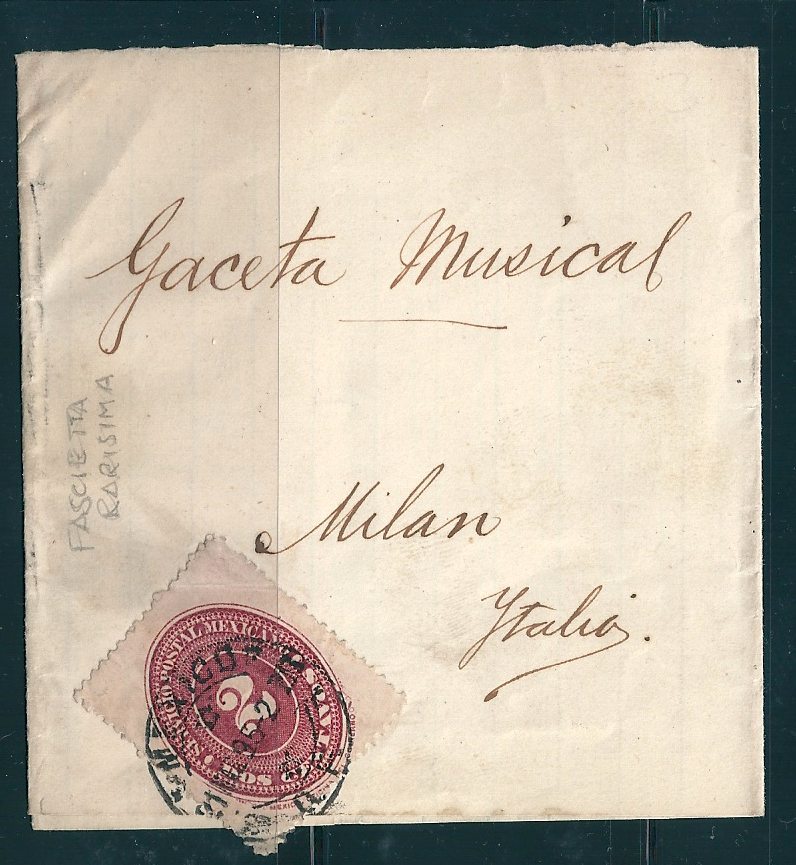 Gaceta Musical
Milan
Italia.
FASCIETTA
RARISIMA
SERVICIO POSTAL MEXICANO
2
DOS CENTAVOS